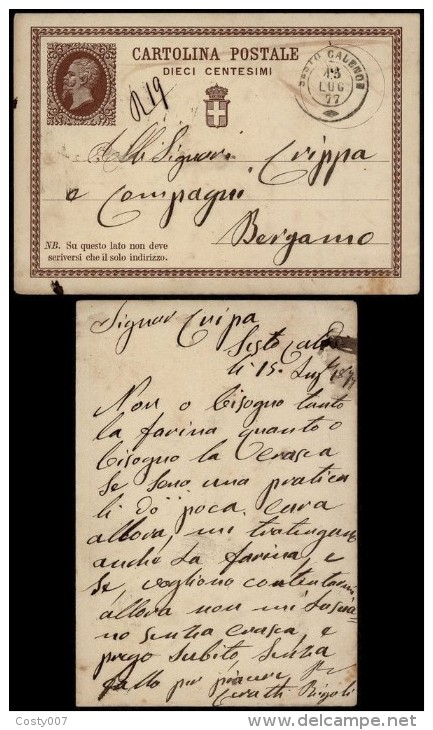 CARTOLINA POSTALE
DIECI CENTESIMI
R 19
SESTO CALENDE
15
LUG
77
Alli Signori Crippa
e Compagni
Bergamo
NB. Su questo lato non deve
scriversi che il solo indirizzo.
Signor Cripa
Sesto Cal
li 15. Lug
Non o bisogno tanto
la farina quanto o
bisogno la Crusca
se sono una pratica
li do poca cura
allora, mi tratengano
anche la farina, e
se vogliono contentarmi
allora non mi lascia=
no senza crusca, e
prego subito senza
fallo per piacere
Costy007
delcampe.net